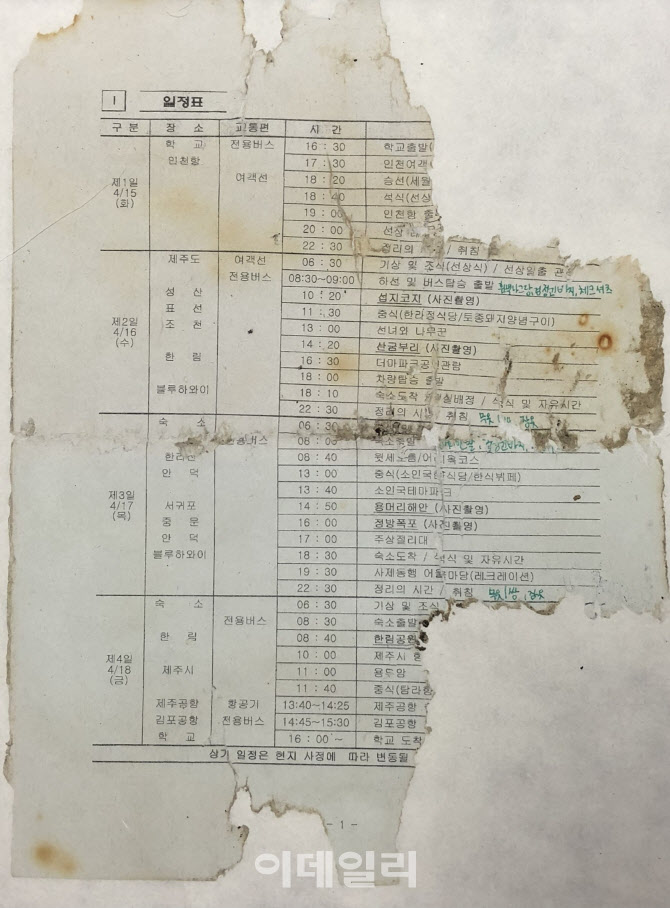 I 일정표
구 분 장 소 교통편 시 간
제1일
4/15
(화)
학 교 전용버스 16 : 30 학교출발(
인천항 17 : 30 인천여객
여객선 18 : 20 승선(세월
18 : 40 석식(선상
19 : 00 인천항 출
20 : 00 선상
22 : 30 정리의 / 취침
제2일
4/16
(수)
제주도 여객선 06 : 30 기상 및 조식(선상식) / 선상일출 관
전용버스 08:30~09:00 하선 및 버스탑승 출발
성 산 10 : 20 섭지코지 (사진촬영)
표 선 11 : 30 중식(한라정식당/토종돼지양념구이)
조 천 13 : 00 선녀와 나무꾼
14 : 20 산굼부리 (사진촬영)
한 림 16 : 30 더마파크공연관람
18 : 00 차량탑승 출발
블루하와이 18 : 10 숙소도착 실배정 / 석식 및 자유시간
22 : 30 정리의 시간 / 취침
제3일
4/17
(목)
숙 소 06 : 30
전용버스 08 : 00 숙소출발
한라산 08 : 40 윗세오름/어 코스
안 덕 13 : 00 중식(소인국 식당/한식뷔페)
13 : 40 소인국테마파크
서귀포 14 : 50 용머리해안 (사진촬영)
중 문 16 : 00 정방폭포 (사진촬영)
안 덕 17 : 00 주상절리대
블루하와이 18 : 30 숙소도착 / 석식 및 자유시간
19 : 30 사제동행 어울마당(레크레이션)
22 : 30 정리의 시간 / 취침
제4일
4/18
(금)
숙 소 06 : 30 기상 및 조식
전용버스 08 : 30 숙소출발
한 림 08 : 40 한림공원
10 : 00 제주시
제주시 11 : 00 용두암
11 : 40 중식(탐라
제주공항 항공기 13:40~14:25 제주공항
김포공항 전용버스 14:45~15:30 김포공항
학 교 16 : 00 ~ 학교 도착
상기 일정은 현지 사정에 따라 변동될
- 1 -
이데일리